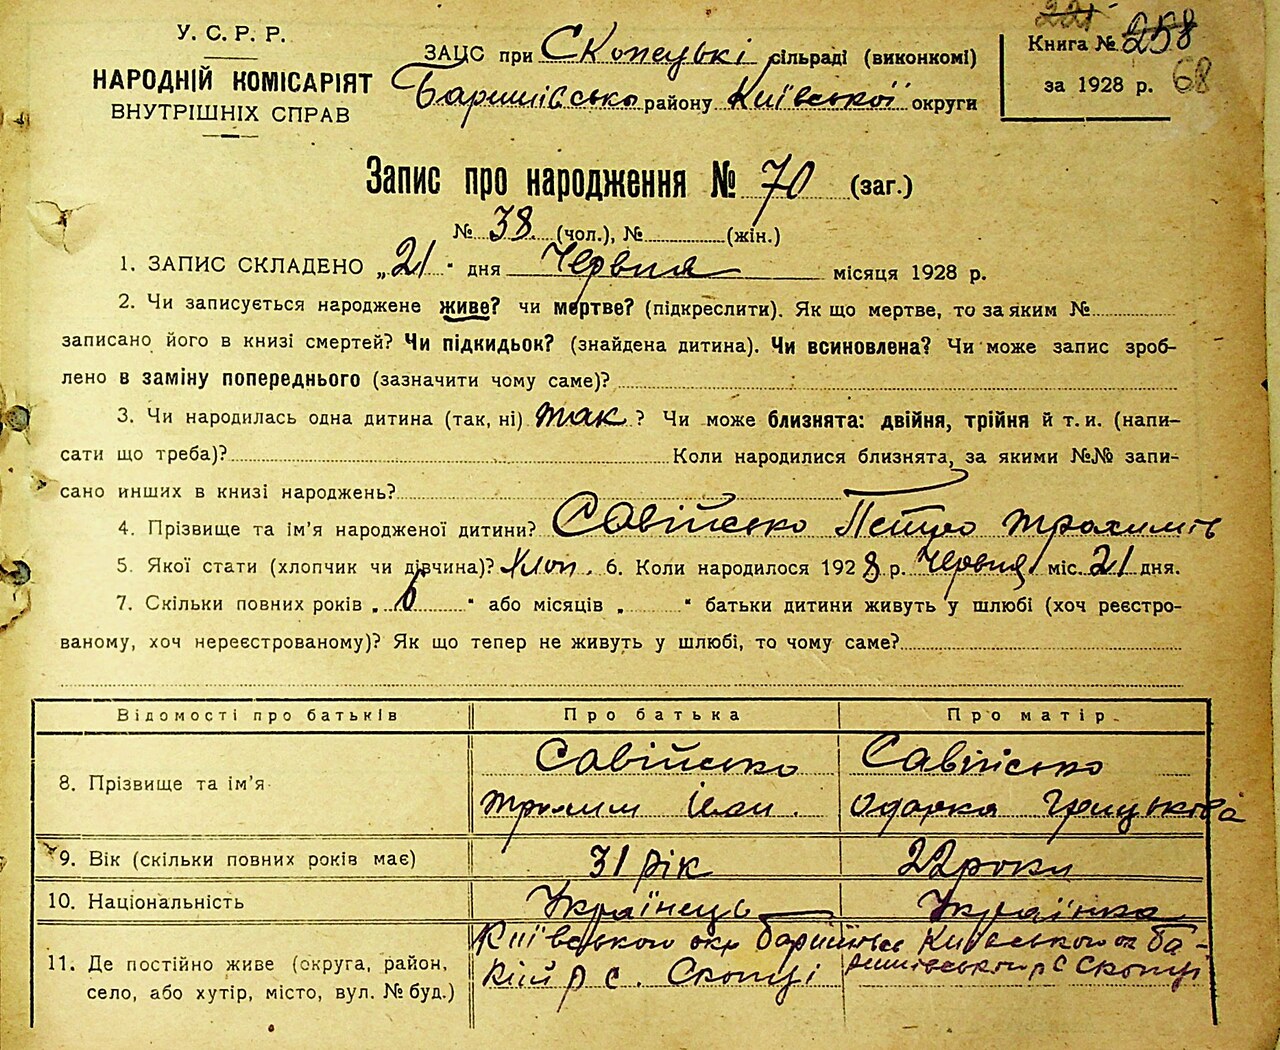 У. С. Р. Р.
НАРОДНІЙ КОМІСАРІЯТ
ВНУТРІШНІХ СПРАВ
ЗАЦС при Скопецькі сільраді (виконкомі)
Баришівсько району Київської округи
221 258
Книга №
за 1928 р. 68
Запис про народження № 70 (заг.)
№ 38 (чол.), № (жін.)
1. ЗАПИС СКЛАДЕНО „21" дня Червня місяця 1928 р.
2. Чи записується народжене живе? чи мертве? (підкреслити). Як що мертве, то за яким №
записано його в книзі смертей? Чи підкидьок? (знайдена дитина). Чи всиновлена? Чи може запис зроб-
лено в заміну попереднього (зазначити чому саме)?
3. Чи народилась одна дитина (так, ні) так ? Чи може близнята: двійня, трійня й т. и. (напи-
сати що треба)? Коли народилися близнята, за якими №№ запи-
сано инших в книзі народжень?
4. Прізвище та ім'я народженої дитини? Савійсько Петро Трохимів
5. Якої стати (хлопчик чи дівчина)? Хлоп. 6. Коли народилося 1928 р. Червня міс. 21 дня.
7. Скільки повних років „ 6 " або місяців „ " батьки дитини живуть у шлюбі (хоч реєстро-
ваному, хоч нереєстрованому)? Як що тепер не живуть у шлюбі, то чому саме?
Відомості про батьків Про батька Про матір.
8. Прізвище та ім'я Савійсько Савійсько
Іван. Одарка Грицькова
9. Вік (скільки повних років має) 31 рік 22 роки
10. Національність Українець Українка
11. Де постійно живе (округа, район,
село, або хутір, місто, вул. № буд.)
Київського окр
р с. Скопці
Київського ок Ба-
ришівського р с Скопці